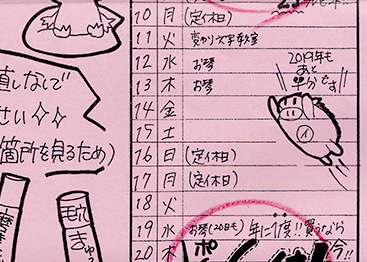 10 月 (定休日)
11 火 変わり文字教室
12 水 お琴
13 木 お琴
14 金
15 土
16 日 (定休日)
17 月 (定休日)
18 火
19 水 お琴(20日も) 年に1度!! 買うなら
20 木 今!!
2019年も
あと
半分です!!
イ
直しなしで
さい
箇所を見るため)
毛穴